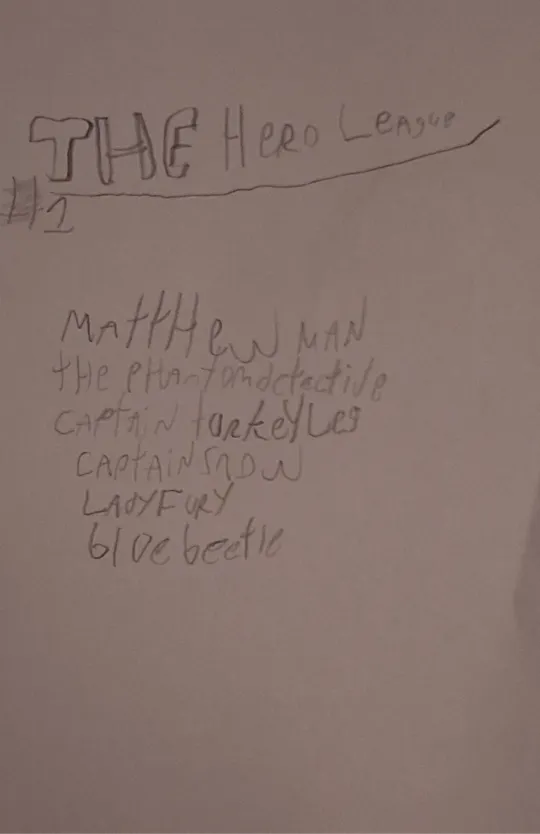 THE Hero League
#1
MAttHew MAN
tHe pHantom detective
CAptAiN turkeyLeg
CAptAiN SnOW
LADY FURY
blue beetle